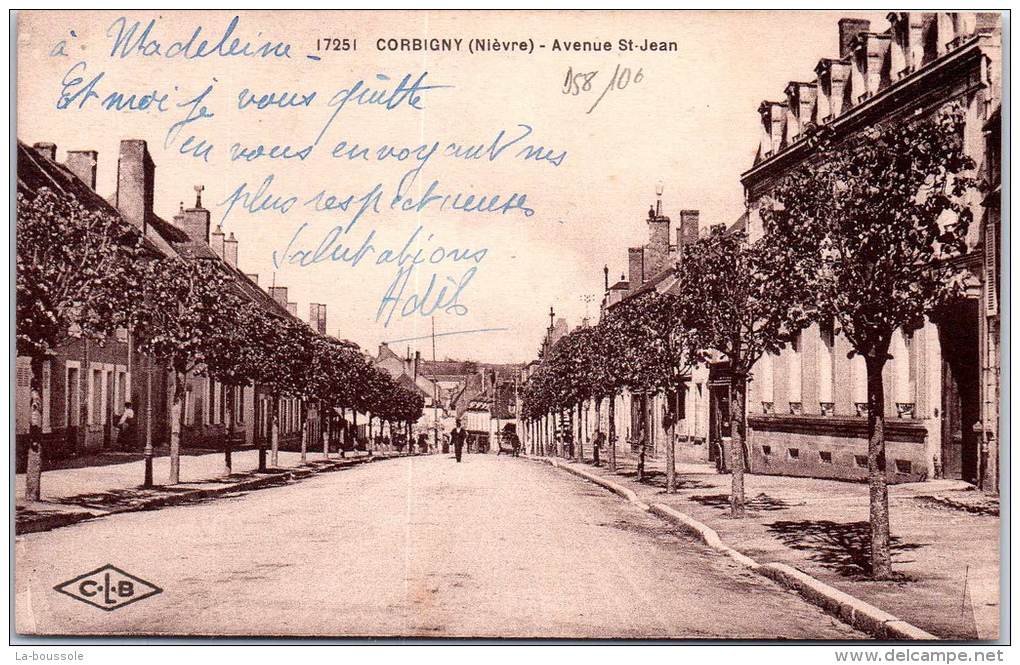 17251 CORBIGNY (Nièvre) - Avenue St-Jean
à Madeleine -
D58/106
Et moi je vous quitte
en vous envoyant nes
plus respectueuses
Salutations
Adèb
C·L·B
La-boussole
www.delcampe.net